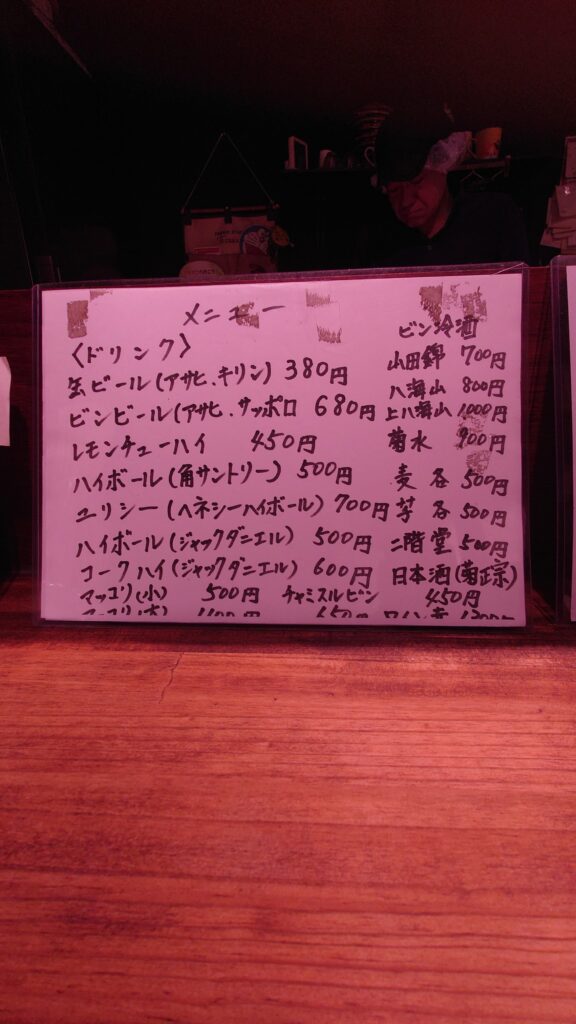 メニュー
〈ドリンク〉
缶ビール(アサヒ、キリン) 380円
ビンビール(アサヒ、サッポロ 680円
レモンチューハイ 450円
ハイボール(角サントリー) 500円
ユリシー(ヘネシーハイボール) 700円
ハイボール(ジャックダニエル) 500円
コークハイ(ジャックダニエル) 600円
マッコリ(小) 500円 チャミスルビン
650円
ビン冷酒
山田錦 700円
八海山 800円
上八海山 1000円
菊水 900円
麦各 500円
芋各 500円
二階堂 500円
日本酒(菊正宗)
450円